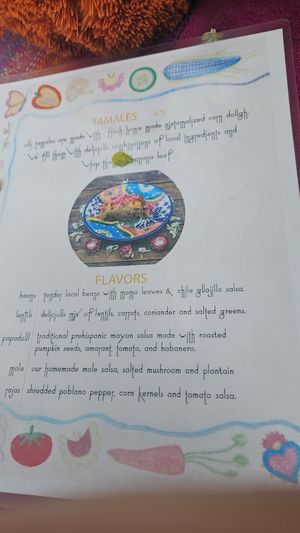 TAMALES
our tamales are made with fresh home made nixtamalized corn dough.
we fill them with delicious combinations of local ingredients and
wrap them banana leaf
FLAVORS
beans tender local beans with momo leaves & chile guajillo salsa.
lentils delicious mix of lentils, carrots, coriander and salted greens.
papadzul traditional prehispanic mayan salsa made with roasted
pumpkin seeds, amarant, tomato, and habanero.
mole our homemade mole salsa, salted mushroom and plantain
rajas shredded poblano pepper, corn kernels and tomato salsa.